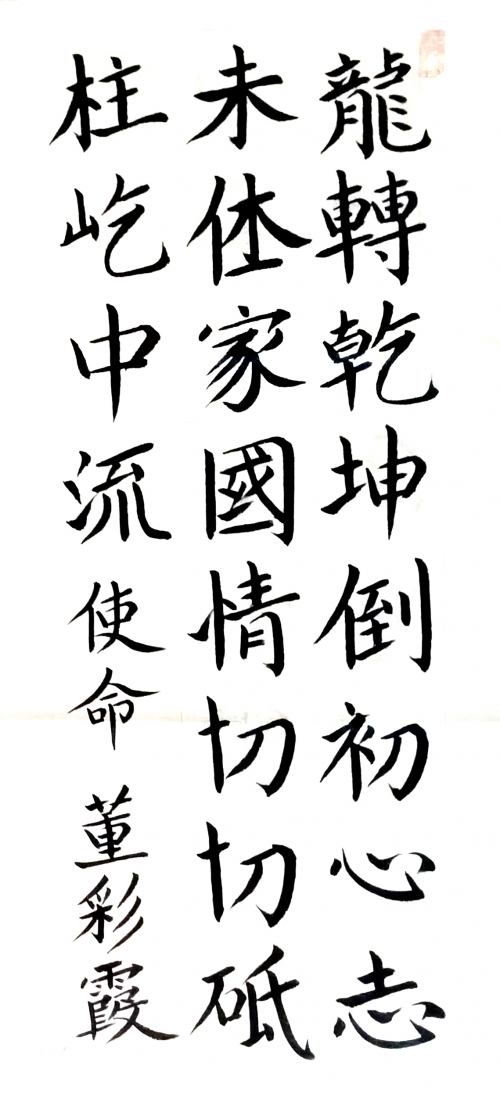 龍轉乾坤倒初心志
未休家國情切切砥
柱屹中流 使命 董彩霞